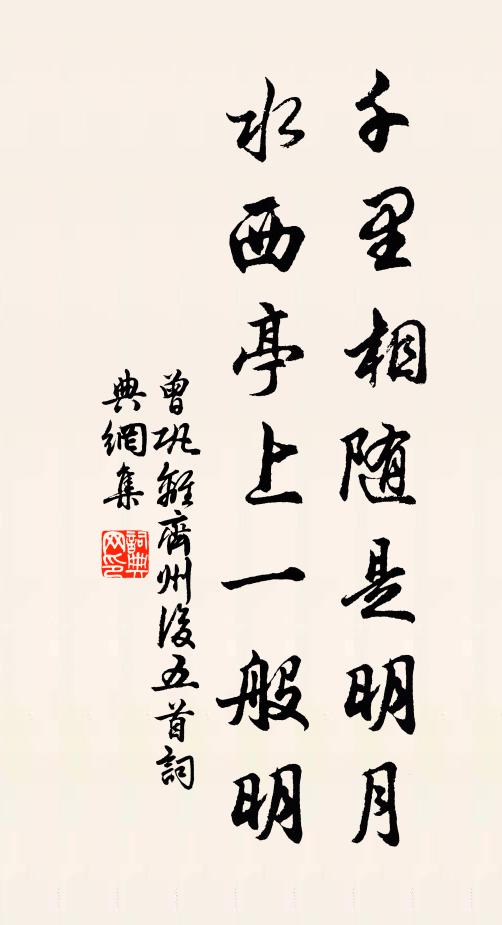 千里相随是明月
水西亭上一般明
曾巩離齊州後五首詞
典網集
詞典网印